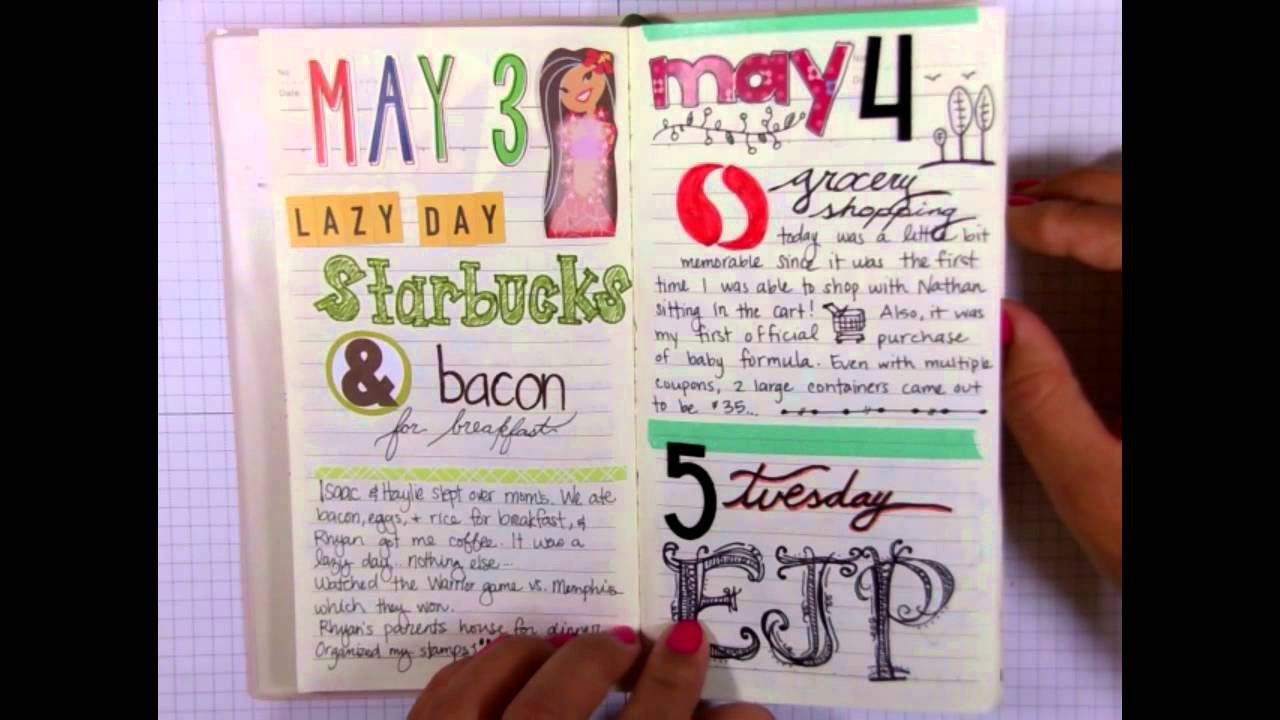 No.
Date
MAY 3
LAZY DAY
Starbucks
& bacon
for breakfast
Isaac & Haylie slept over mom's. We ate
bacon, eggs, + rice for breakfast, &
Rhyan got me coffee. It was a
lazy day... nothing else...
Watched the Warrior game vs. Memphis
which they won.
Rhyan's parents house for dinner
Organized my stamps!
may 4
grocery
shopping
today was a little bit
memorable since it was the first
time I was able to shop with Nathan
sitting in the cart! Also, it was
my first official purchase
of baby formula. Even with multiple
coupons, 2 large containers came out
to be $35...
5 tuesday
EJP